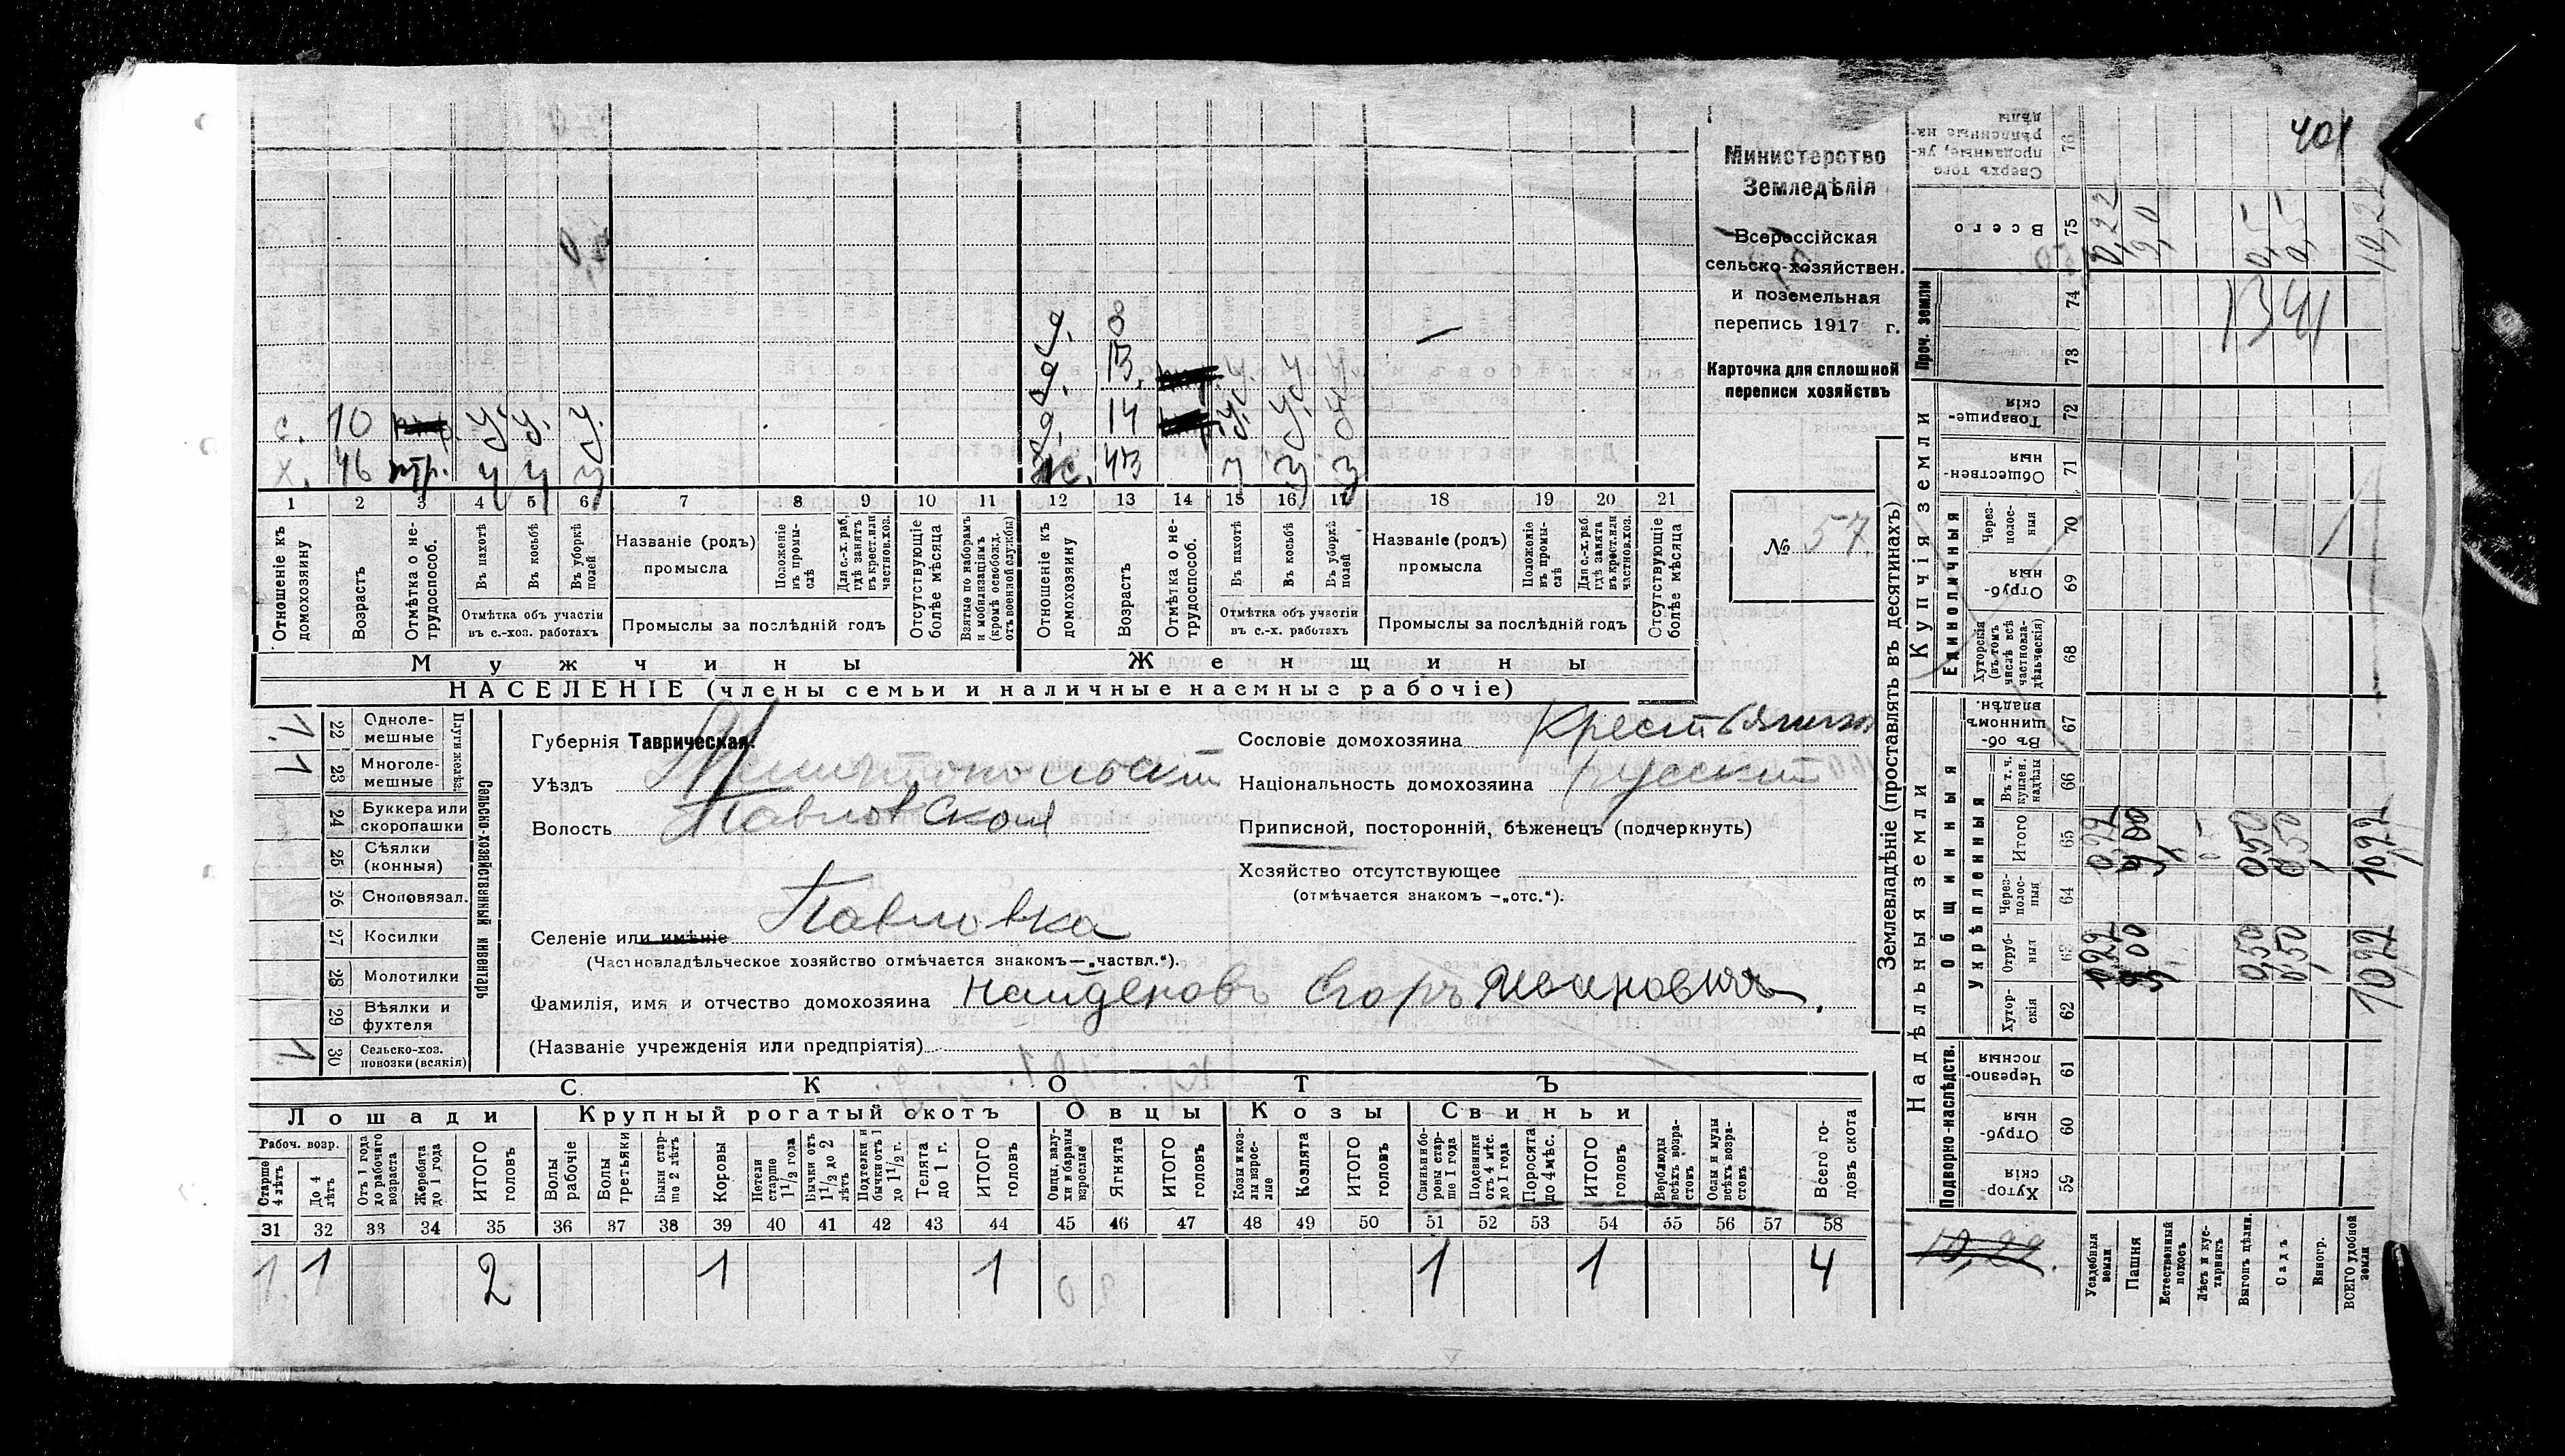 401
Министерство
Земледѣлія
Всероссійская
сельско-хозяйствен.
и поземельная
перепись 1917 г.
Карточка для сплошной
переписи хозяйствъ
№ 57
д. 8
д. 13
с. 10 у у. у. д. 14 у. у. у
х. 46 нтр. у у у ж. 43 у у у
1 2 3 4 5 6 7 8 9 10 11 12 13 14 15 16 17 18 19 20 21
Отношеніе къ домохозяину
Возрастъ
Отмѣтка о не-трудоспособ.
Въ пахотѣ
Въ косьбѣ
Въ уборкѣ полей
Отмѣтка объ участіи въ с.-хоз. работахъ
Названіе (родъ) промысла
Положеніе въ промы-слѣ
Для с.-х. раб. гдѣ занятъ въ крест. или частновл. хоз.
Промыслы за послѣдній годъ
Отсутствующіе болѣе мѣсяца
Взятые по наборамъ и мобилизаціямъ (кромѣ освобожд. отъ военной службы)
Отношеніе къ домохозяину
Возрастъ
Отмѣтка о не-трудоспособ.
Въ пахотѣ
Въ косьбѣ
Въ уборкѣ полей
Отмѣтка объ участіи въ с.-х. работахъ
Названіе (родъ) промысла
Положеніе въ промы-слѣ
Для с.-х. раб. гдѣ занята въ крест. или частновл. хоз.
Промыслы за послѣдній годъ
Отсутствующіе болѣе мѣсяца
Мужчины Женщины
НАСЕЛЕНІЕ (члены семьи и наличные наемные рабочіе)
Сельско-хозяйственный инвентарь
Плуги желѣз.
22 Одноле-мешные 1
23 Многоле-мешные 1
24 Буккера или скоропашки
25 Сѣялки (конныя)
26 Сноповязал.
27 Косилки
28 Молотилки
29 Вѣялки и фухтеля
30 Сельско-хоз. повозки (всякія) 1
Губернія Таврическая.
Уѣздъ Мелитопольскій
Волость Павловская
Селеніе или имѣніе Павловка
(Частновладѣльческое хозяйство отмѣчается знакомъ—„частвл.“).
Фамилія, имя и отчество домохозяина Найденовъ Егоръ Ивановичъ.
(Названіе учрежденія или предпріятія)
Сословіе домохозяина Крестьянин
Національность домохозяина русский
Приписной, посторонній, бѣженецъ (подчеркнуть)
Хозяйство отсутствующее
(отмѣчается знакомъ —„отс.“).
СКОТЪ
Лошади Крупный рогатый скотъ Овцы Козы Свиньи
Рабоч. возр.
Старше 4 лѣтъ
До 4 лѣтъ
Отъ 1 года до рабочаго возраста
Жеребята до 1 года
ИТОГО головъ
Волы рабочіе
Волы третьяки
Быки стар-ше 2 лѣтъ
Коровы
Нетели старше 1½ года
Бычки отъ 1½ до 2 лѣтъ
Подтелки и бычки отъ 1 до 1½ г.
Телята до 1 г.
ИТОГО головъ
Овцы, валу-хи и бараны взрослые
Ягнята
ИТОГО головъ
Козы и коз-лы взрос-лые
Козлята
ИТОГО головъ
Свиньи и бо-ровы стар-ше 1 года
Подсвинки отъ 4 мѣс. до 1 года
Поросята до 4 мѣс.
ИТОГО головъ
Верблюды всѣхъ возра-стовъ
Ослы и мулы всѣхъ возра-стовъ
Всего го-ловъ скота
31 32 33 34 35 36 37 38 39 40 41 42 43 44 45 46 47 48 49 50 51 52 53 54 55 56 57 58
1 1 2 1 1 1 1 4
Землевладѣніе (проставлять въ десятинахъ)
Надѣльныя земли
Купчія земли
Проч. земли
Подворно-наслѣдств.
Общинныя
Укрѣпленныя
Единоличныя
Сверхъ того проданные, ук-рѣпленные на-дѣлы 76
Всего 75 10,22 9,0 0,5 0,5 10,22
74 1341
73
Товарище-скія 72
Обществен-ныя 71
Через-полос-ныя 70
Отруб-ныя 69
Хуторскія (въ томъ числѣ всѣ частновла-дѣльческія) 68
Въ об-щинномъ владѣн. 67
Въ т. ч. куплен. надѣлы 66
Итого 65 0,22 9,00 0,50 0,50 10,22
Через-полос-ныя 64
Отруб-ныя 63 0,22 9,00 0,50 0,50 10,22
Хутор-скія 62
Черезпо-лосныя 61
Отруб-ныя 60
Хутор-скія 59
10,22.
Усадебныя земли
Пашня
Естественный покосъ
Лѣсъ и кус-тарникъ
Выгонъ цѣлин.
Садъ
Виногр.
ВСЕГО удобной земли